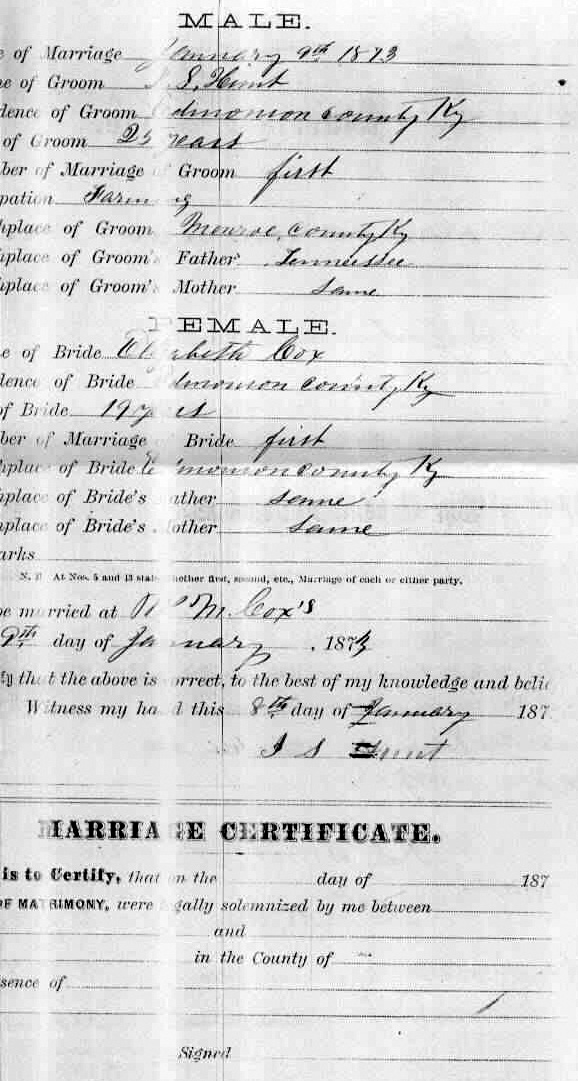 MALE.
e of Marriage January 9th 1873
ne of Groom S. Hunt
dence of Groom Edmonson County Ky
of Groom years
ber of Marriage of Groom first
pation Farming
hplace of Groom Monroe County Ky
hplace of Groom's Father Tennessee
hplace of Groom's Mother Same
FEMALE.
e of Bride Elizabeth Cox
dence of Bride Edmonson County Ky
of Bride 19 years
ber of Marriage of Bride first
hplace of Bride Edmonson County Ky
hplace of Bride's Father Same
hplace of Bride's Mother Same
arks
N. B. At Nos. 5 and 13 state whether first, second, etc., Marriage of each or either party.
be married at M. Cox's
9th day of January , 1873
fy that the above is correct, to the best of my knowledge and belie
Witness my hand this 8th day of January 187
I S Hunt
MARRIAGE CERTIFICATE.
is to Certify, that on the day of 187
OF MATRIMONY, were legally solemnized by me between
and
in the County of
sence of
Signed